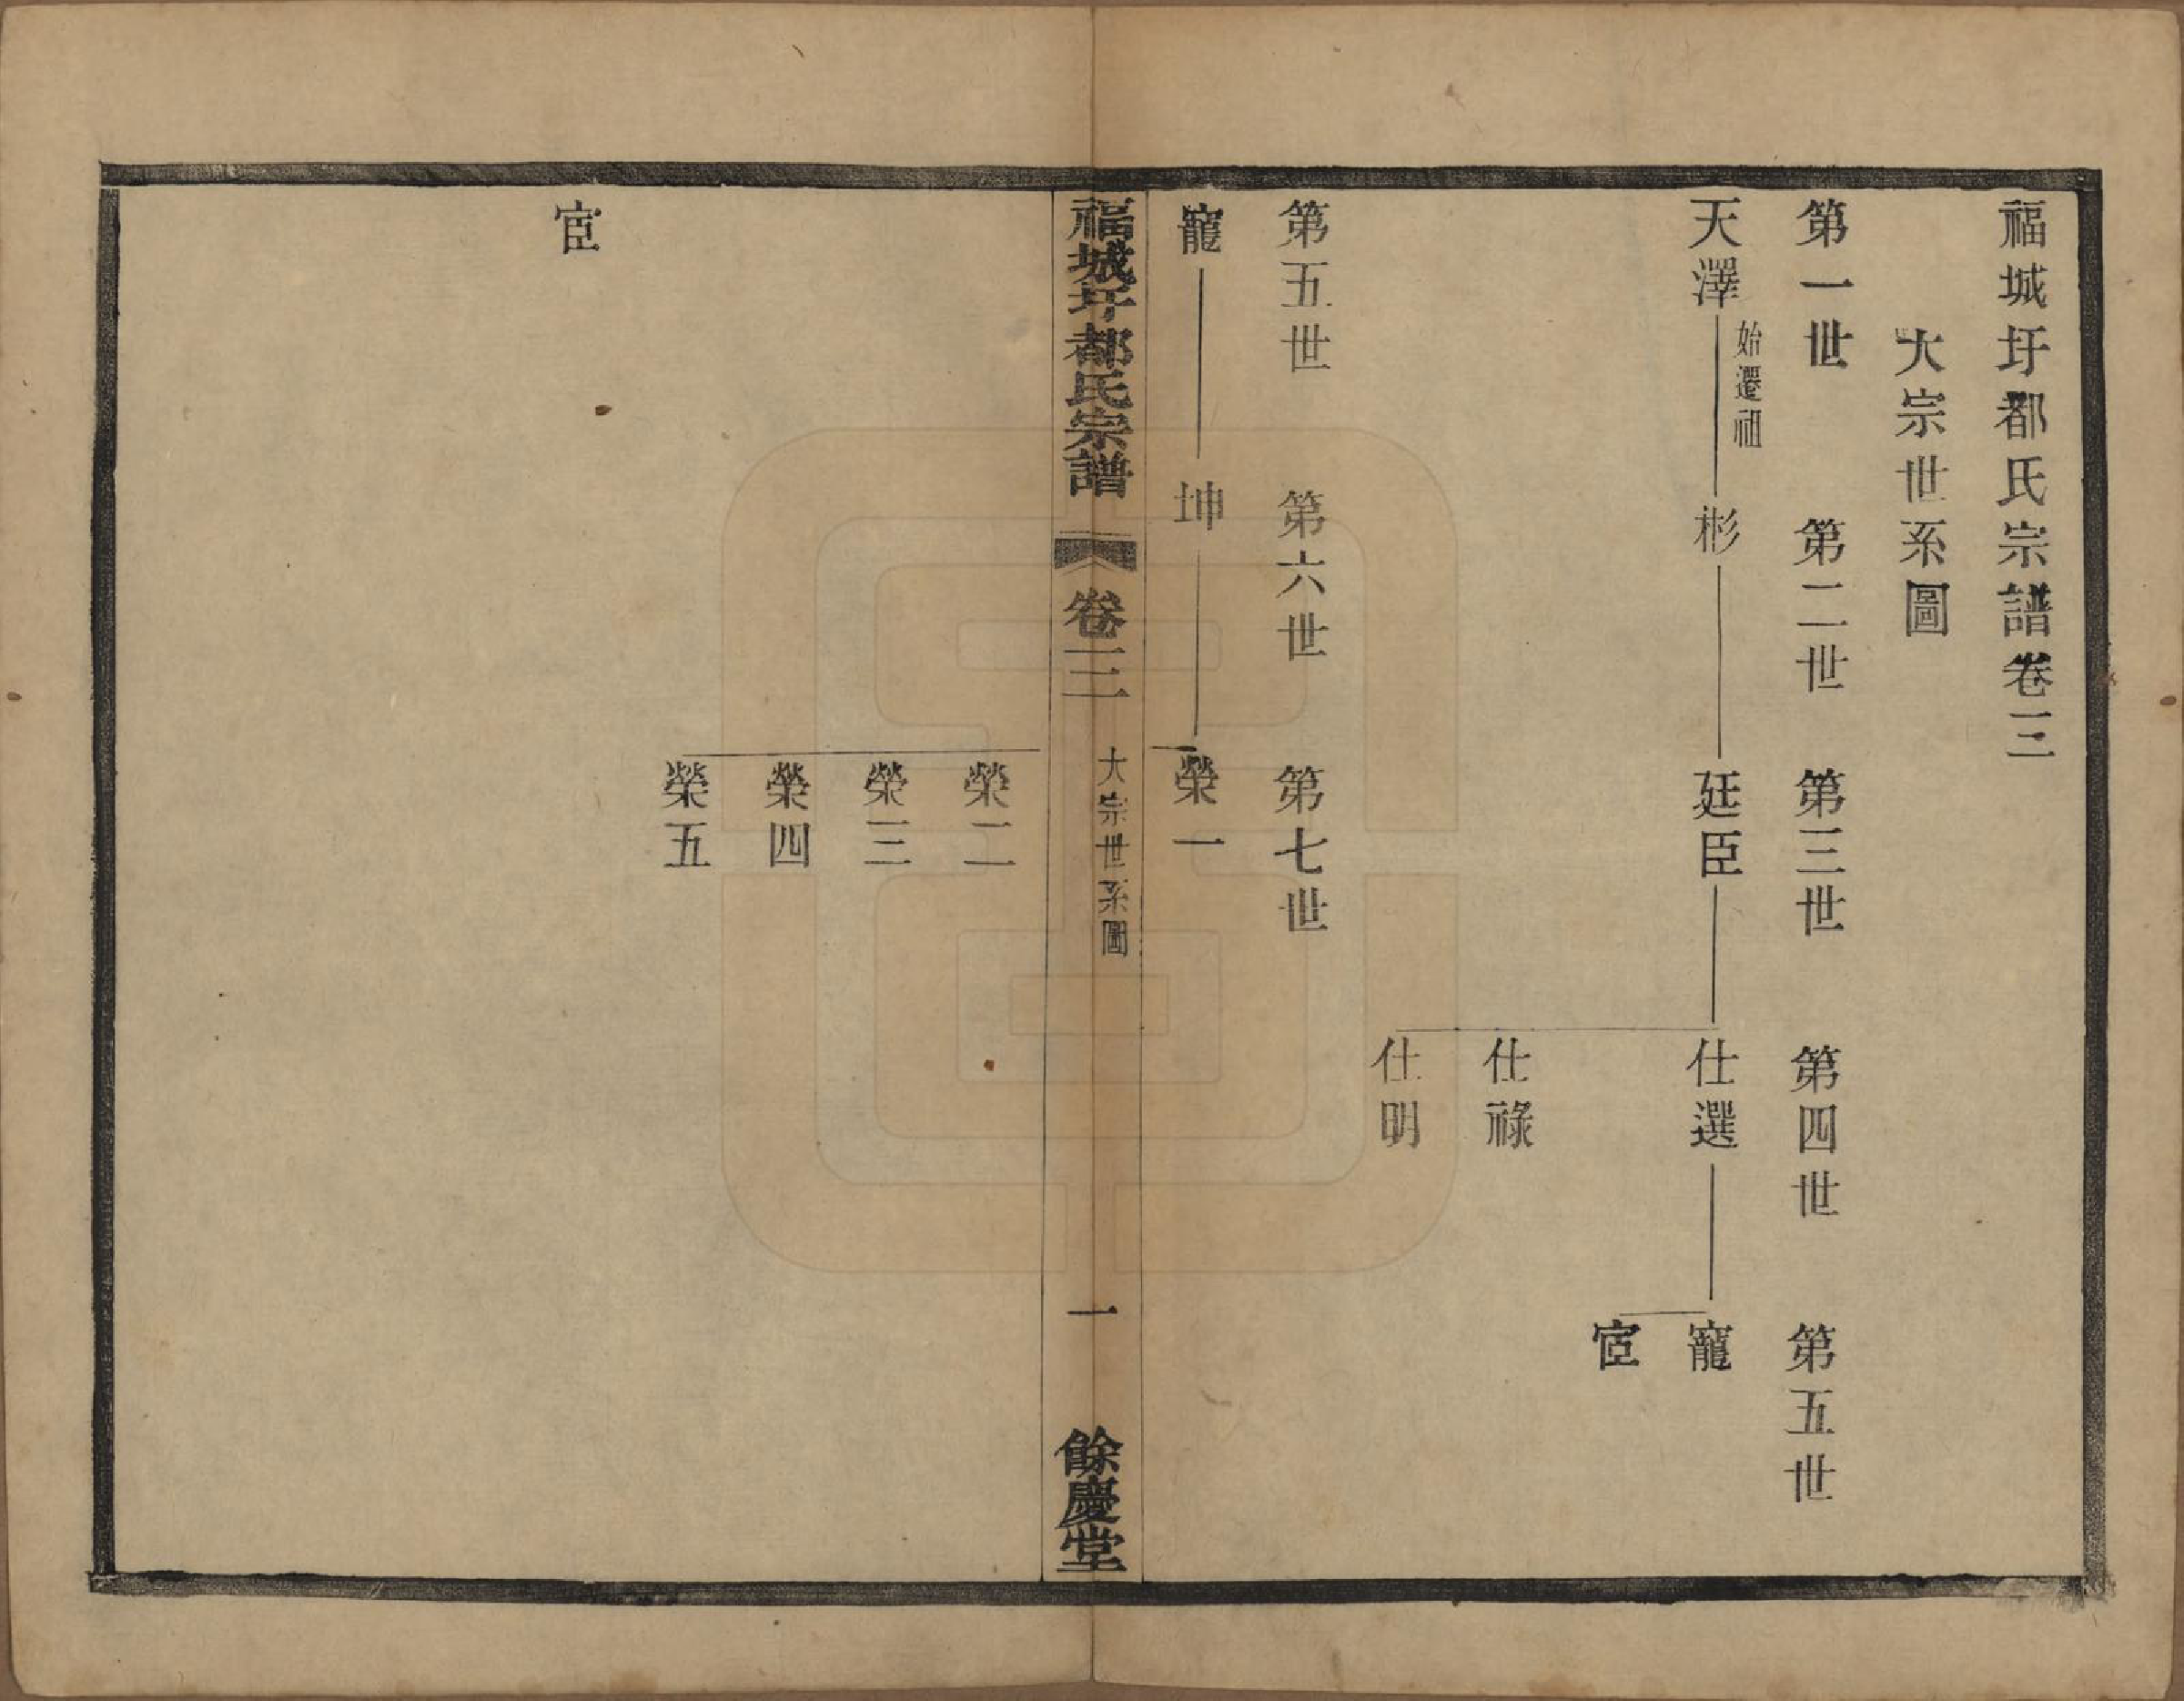 福城圩都氏宗譜卷三
大宗世系圖
第一世 第二世 第三世 第四世 第五世
始遷祖
天澤 彬 廷臣 仕選 寵
宦
仕祿
仕明
第五世 第六世 第七世
寵 坤 榮一
福城圩都氏宗譜 卷三 大宗世系圖 一 餘慶堂
榮二
榮三
榮四
榮五
宦